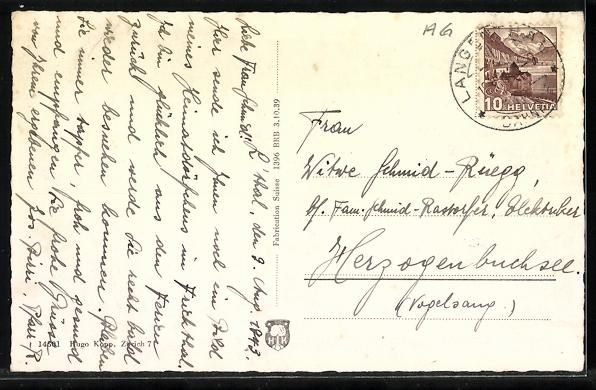 AG
LANGENTHAL
BAHNHOF
10 HELVETIA
Frau
Witwe Schmid-Rüegg,
bf. Fam. Schmid-Rastorfer, Elektriker
Herzogenbuchsee.
(Vogelsang.)
Fabrication Suisse 1396 BRB 3.10.39
L'thal, den 9. Aug. 1943.
Liebe Frau Schmid!
Hier sende ich Ihnen noch ein Bild
meines Heimatdörfchens im Fricktal.
Ich bin glücklich aus den Ferien
zurück und werde Sie recht bald
wieder besuchen kommen. Bleiben
Sie immer tapfer, froh und gesund
und empfangen Sie frohe Grüsse
von Ihrem ergebenen Pfr.
14501 Hugo Kopp, Zürich 7
HK